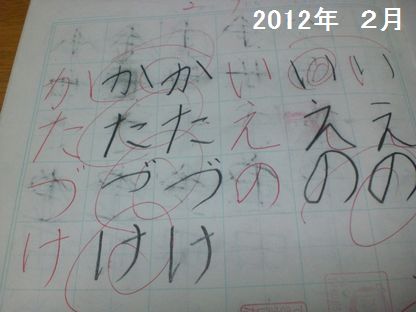 2012年 2月
いえの
いえの
いえの
かたづけ
かたづけ
かたづけ